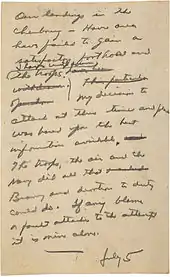 Our landings in the
Cherbourg - Havre area
have failed to gain a
satisfactory foothold and
the troops
I have withdrawn
My decision to
attack at this time and place
was based upon the best
information available.
The troops, the air and the
Navy did all that
Bravery and devotion to duty
could do. If any blame
or fault attaches to the attempt
it is mine alone.
July 5